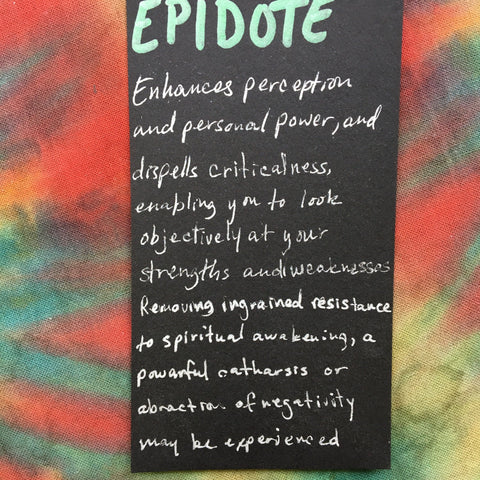 EPIDOTE
Enhances perception
and personal power, and
dispells criticalness,
enabling you to look
objectively at your
strengths and weaknesses
Removing ingrained resistance
to spiritual awakening, a
powerful catharsis or
abraction of negativity
may be experienced